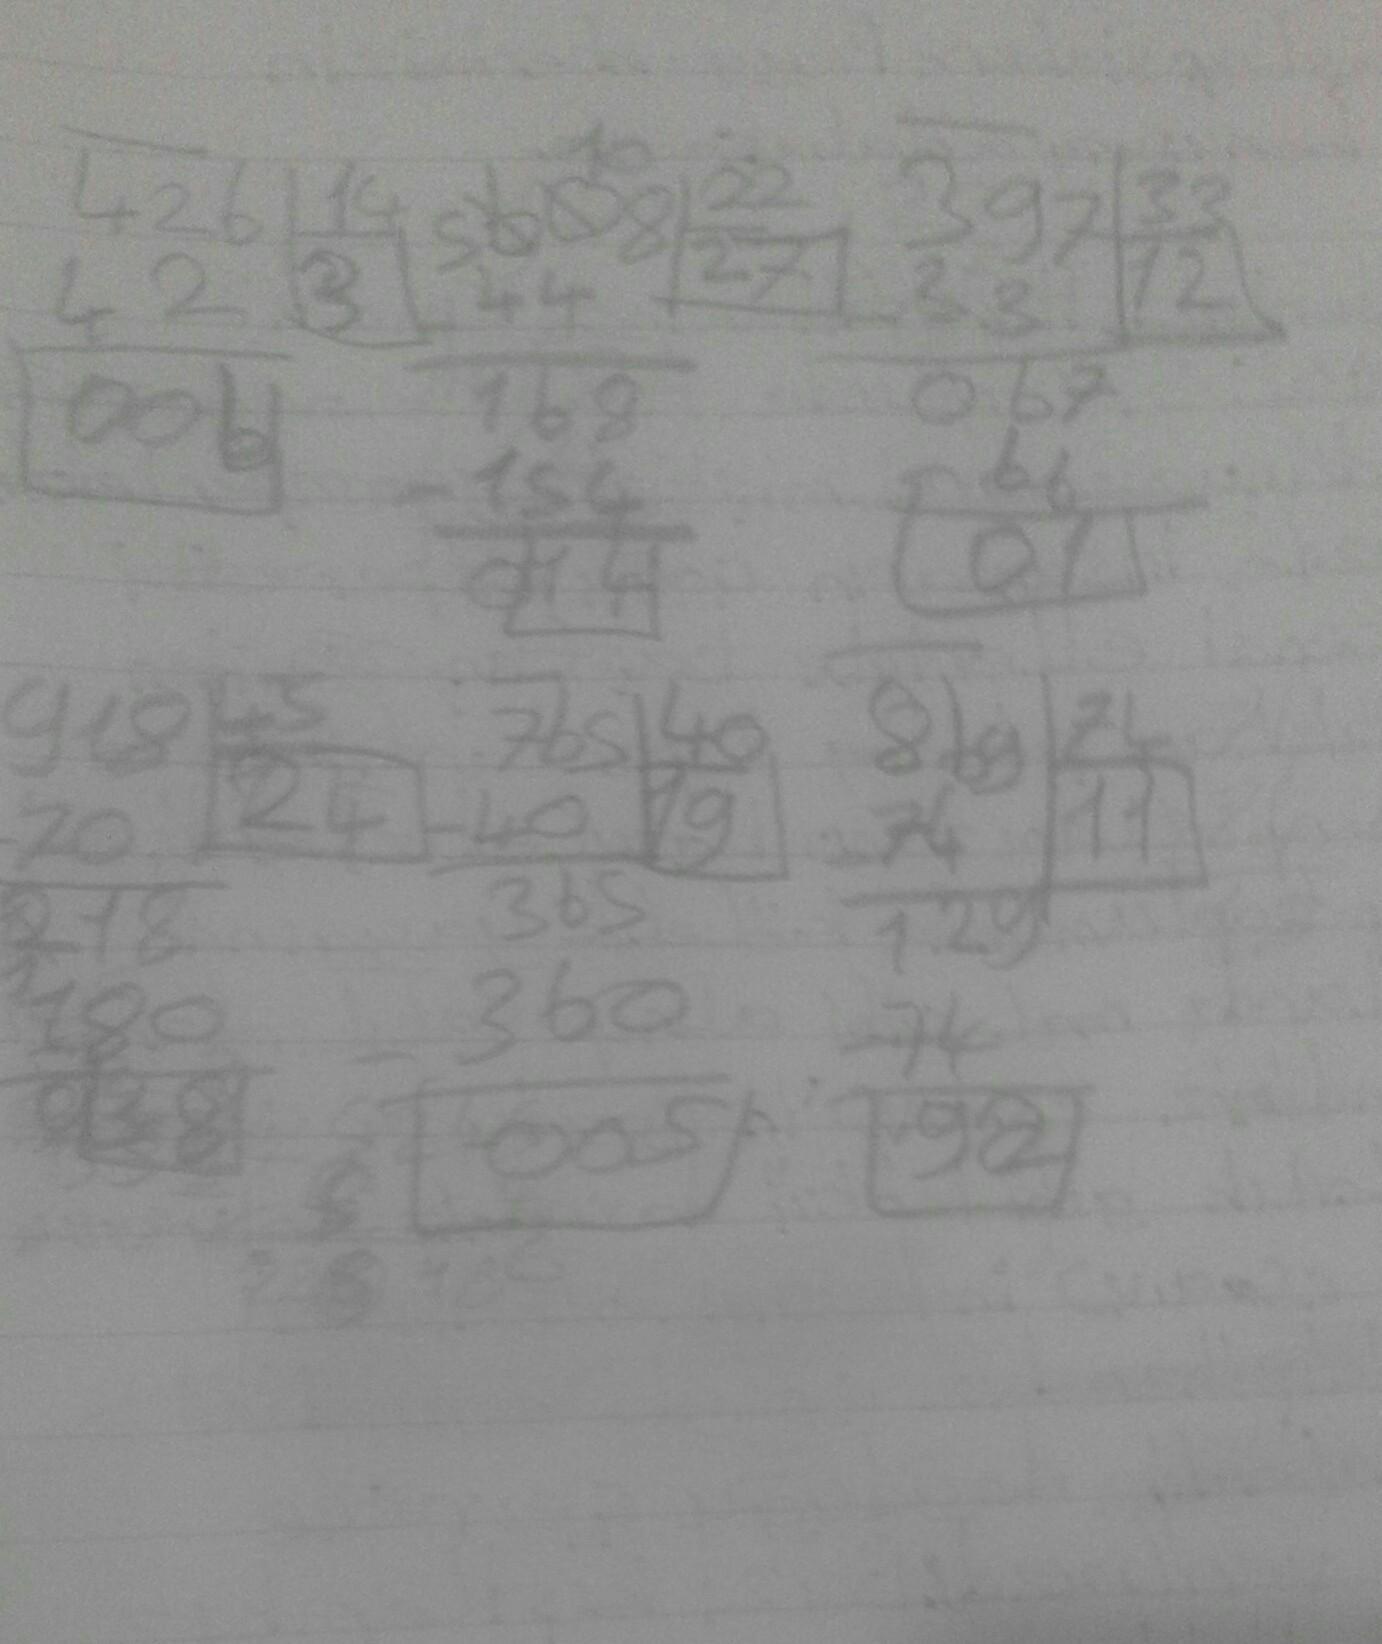 426 14 5608 22 397 33
42 3 44 27 33 12
006 168 067
- 154 - 66
014 01
918 45 765 40 869 74
70 24 - 40 19 74 11
218 365 129
180 - 360 - 74
038 005